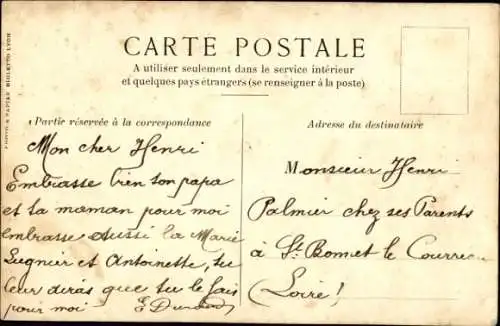 CARTE POSTALE
A utiliser seulement dans le service intérieur
et quelques pays étrangers (se renseigner à la poste)
Partie réservée à la correspondance
Adresse du destinataire
Mon cher Henri
Embrasse bien ton papa
et ta maman pour moi
embrasse aussi la Marie
et Antoinette, tu
leur diras que tu le fais
pour moi
Monsieur Henri
Palmier chez ses Parents
à St Bonnet le Courreau
(Loire)